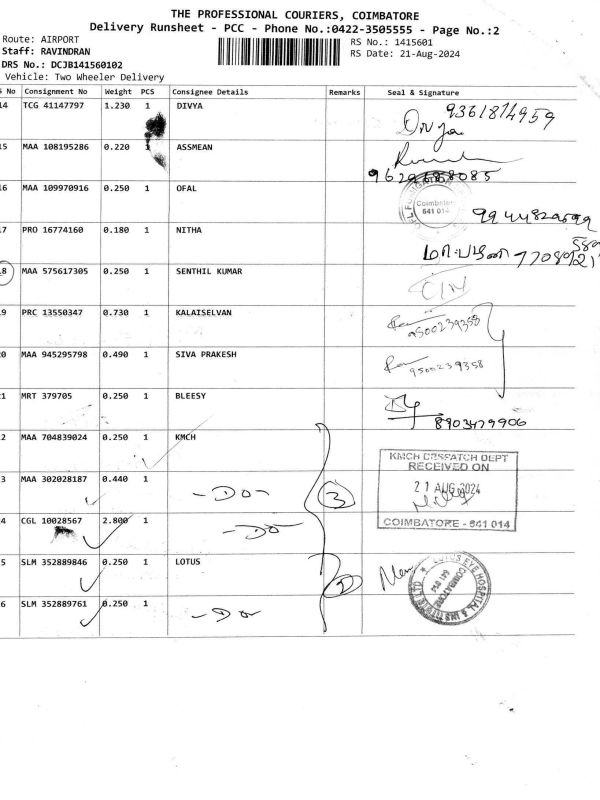 THE PROFESSIONAL COURIERS, COIMBATORE
Delivery Runsheet - PCC - Phone No.:0422-3505555 - Page No.:2
Route: AIRPORT
RS No.: 1415601
Staff: RAVINDRAN
RS Date: 21-Aug-2024
DRS No.: DCJB141560102
Vehicle: Two Wheeler Delivery
S No Consignment No Weight PCS Consignee Details Remarks Seal & Signature
14 TCG 41147797 1.230 1 DIVYA Divya 9361874959
15 MAA 108195286 0.220 1 ASSMEAN
16 MAA 109970916 0.250 1 OFAL Coimbatore 641 014
17 PRO 16774160 0.180 1 NITHA
18 MAA 575617305 0.250 1 SENTHIL KUMAR
19 PRC 13550347 0.730 1 KALAISELVAN 9500239358
20 MAA 945295798 0.490 1 SIVA PRAKESH 9500239358
21 MRT 379705 0.250 1 BLEESY 8903479906
22 MAA 704839024 0.250 1 KMCH KMCH DESPATCH DEPT
RECEIVED ON
23 MAA 302028187 0.440 1 - Do - 3 21 AUG 2024
24 CGL 10028567 2.800 1 - Do COIMBATORE - 641 014
25 SLM 352889846 0.250 1 LOTUS LOTUS EYE HOSPITAL & INSTITUTE LTD
COIMBATORE
641 014
26 SLM 352889761 0.250 1 - Do -